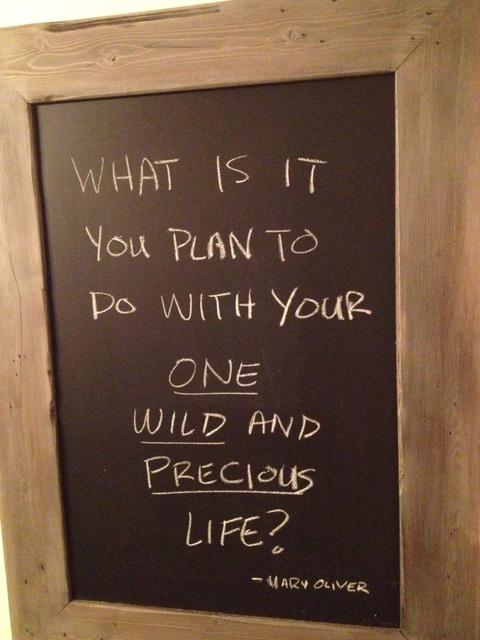 WHAT IS IT
YOU PLAN TO
DO WITH YOUR
ONE
WILD AND
PRECIOUS
LIFE?
- MARY OLIVER